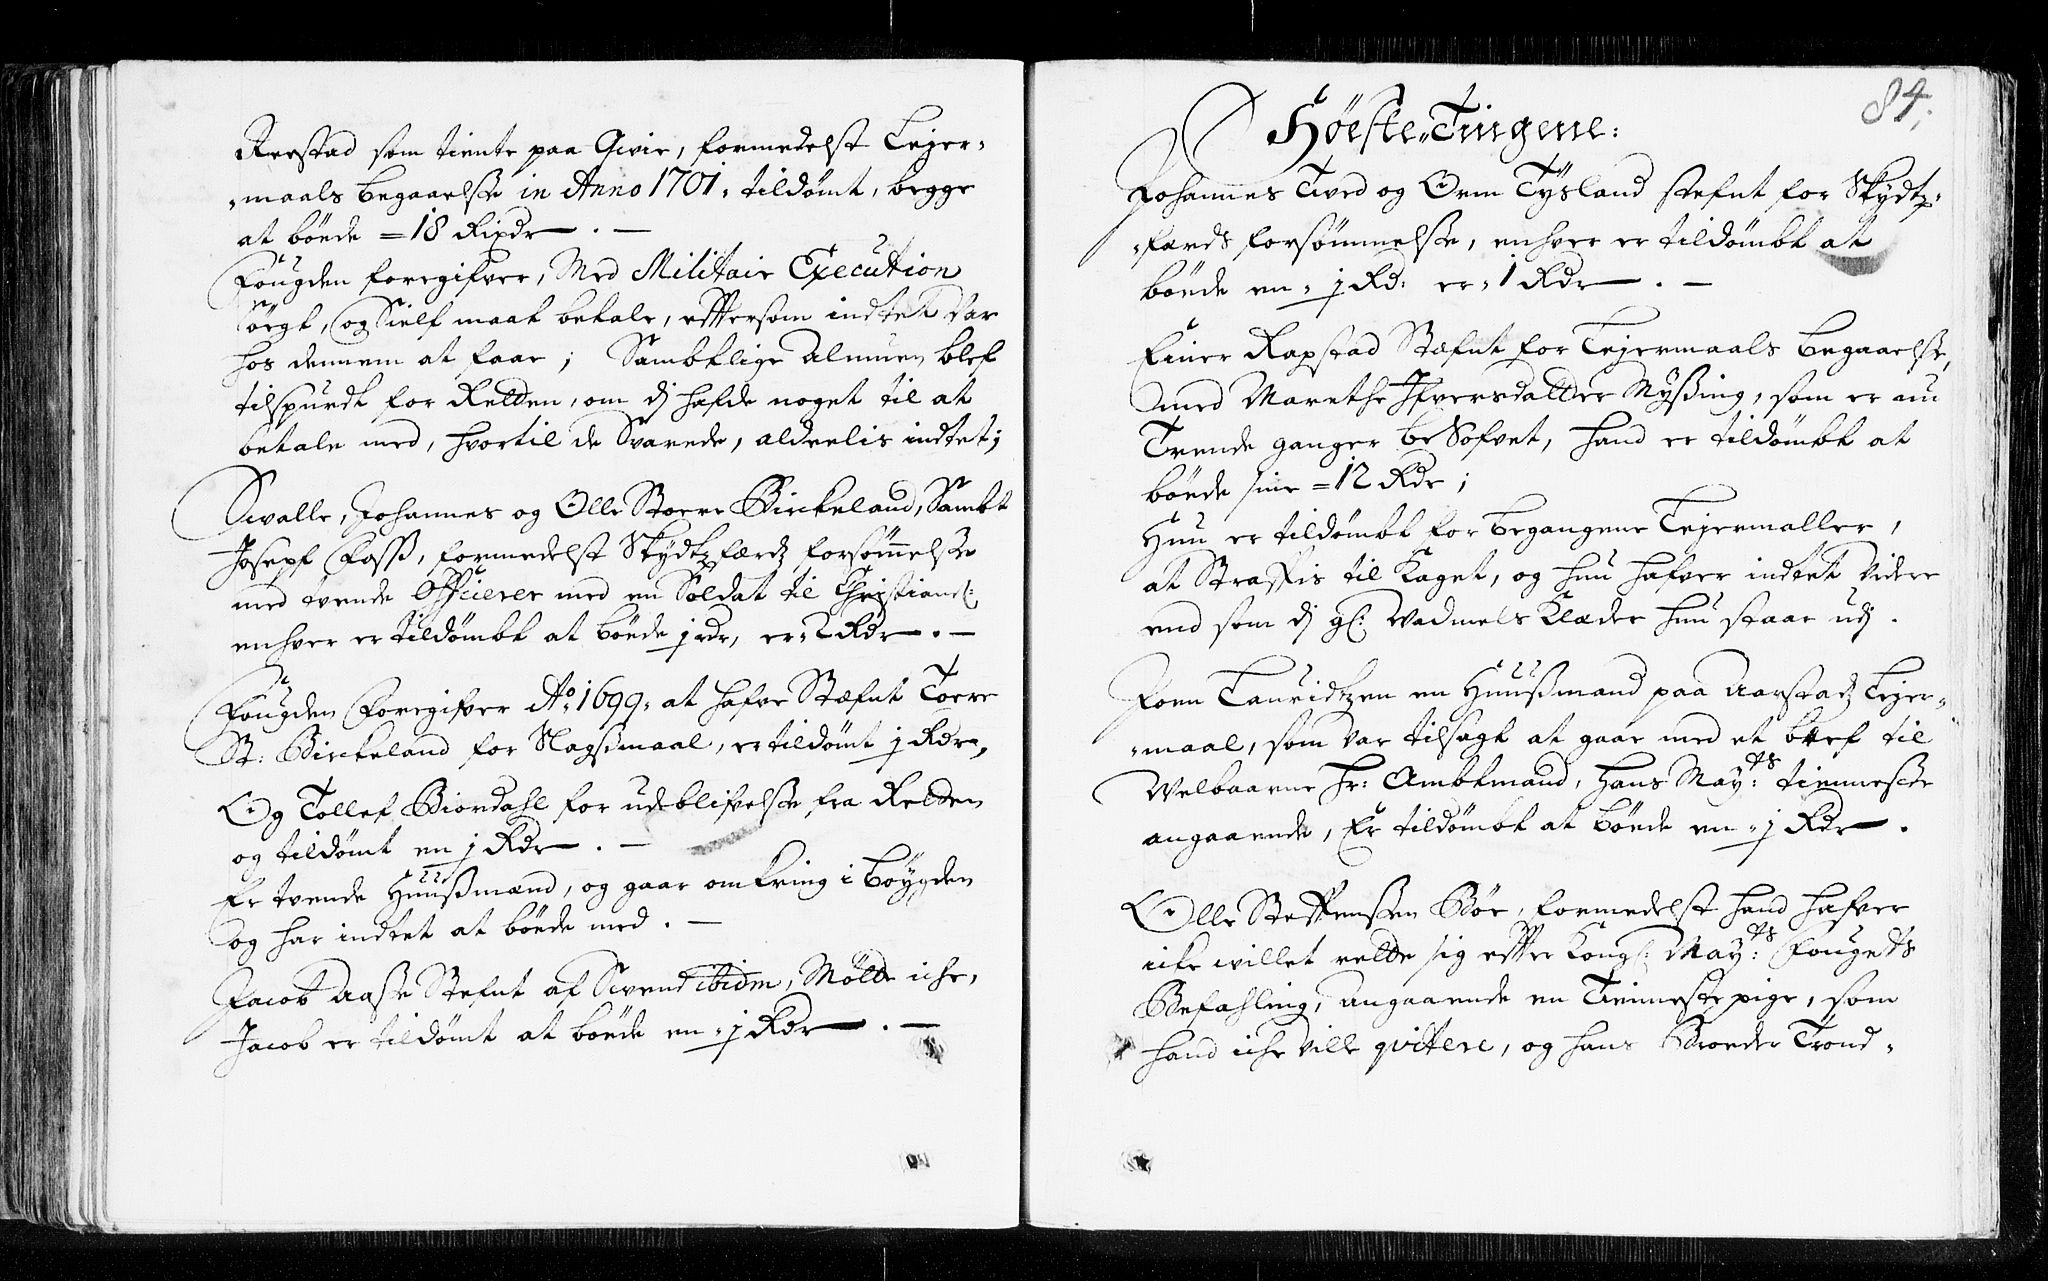 Reestad som tiente paa Qvie, formedelst Lejer-
-maals begaaelse in Anno 1701, tildömt, begge
at böede = 18 Rixdr.
Fougden foregifver, Med Militair Execution
Sögt, og Sielf maat betale, effttersom indtet var
hos dennem at faae; Sambtlige Almuen blef
tilspurdt for Retten, om dj hafde noget til at
betale med, hvortil de Svarede, aldeelis indtet;
Sivalle, Johannes og Olle Stoere Birckeland, Sambt
Joseph Foss, formedelst Skydtzferdz forsömelse
med tvende Officierer med en Soldat til Christians:
enhver er tildömbt at böede 1 rdr, er 2 Rdr.
Fougden Foregifver Ao 1699, at hafve Stefnt Toere
St: Birckeland for Slagsmaal, er tildömt 1 Rdr,
Og Tollef Biordahl for udeblifvelse fra Retten
og tildömt en 1 Rdr.
Er tvende Huusmænd, og gaar omkring i Böygden
og har indtet at böede med.
Jacob Aase Stefnt af Sivend ibidm, Mötte iche,
Jacob er tildömt at böede en 1 Rdr.
84.
Höeste-Tingene:
Johannes Tved og Orm Tÿsland stefnt for Skydtz-
-færds forsömmelse, enhver er tildömbt at
böede en 1 Rd: er 1 Rdr.
Einer Rapstad Stefnt for Lejermaals begaaelse,
med Marethe Ifversdatter Nyssing, som er nu
Trende ganger besofvet, hand er tildömbt at
böede sine = 12 Rdr;
Hun er tildömbt for begangene Lejermaller,
at Straffis til Kaget, og hun hafver indtet videre
end som dj gl: Vadmels Klæder hun staar udj.
Joen Lauridtzen en Huusmand paa Aarstadz Lejer-
-maal, som var tilsagt at gaae med et bref til
Welbaarne Hr: Ambtmand, Hans May:ts tienneste
angaaende, Er tildömbt at böede en 1 Rdr.
Olle Steffensen Böe, formedelst hand hafver
icke willet rette sig efter Kongl: May:ts Fougeds
Befahling, angaaende en Tienneste pige, som
hand iche ville qvitere, og hans Broeder Trond